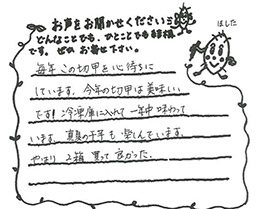 お声をお聞かせください
どんなことでも、ひとことでも結構
です。ぜひお寄せ下さい。
はした
毎年この切甲を心待ちに
しています。今年の切甲は美味しい
です！冷凍庫に入れて一年中味わって
います。真夏の干芋も楽しんでいます。
やはり2箱買って良かった。